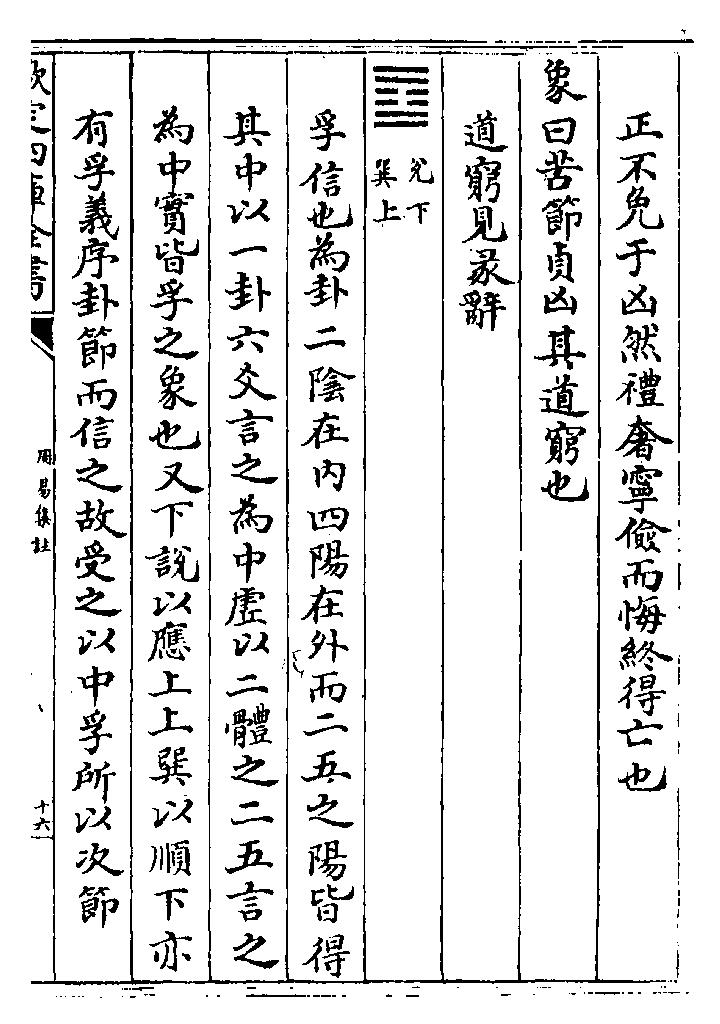 正不免于凶然禮奢寧儉而悔終得亡也
象曰苦節貞凶其道窮也
道窮見彖辭
䷼
兌下
巽上
孚信也為卦二陰在內四陽在外而二五之陽皆得
其中以一卦六爻言之為中虛以二體之二五言之
為中實皆孚之象也又下說以應上上巽以順下亦
有孚義序卦節而信之故受之以中孚所以次節
欽定四庫全書
周易集註
十六